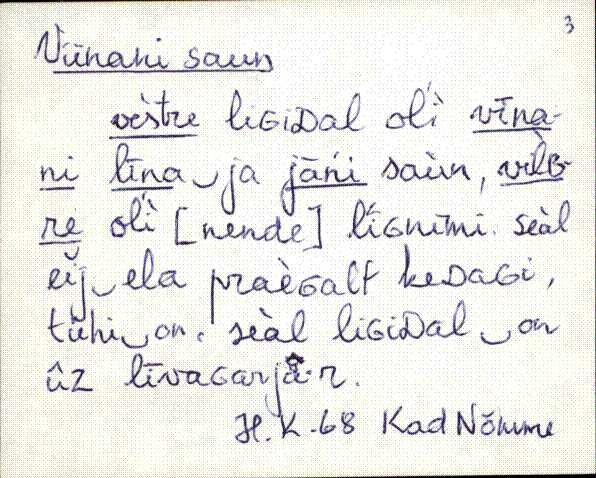 3
Viinani saun
vèstre liGiDal olì vīna-
ni līna‿ja jāńi saùn, vilB-
re olì [nende] líGnimi. seàl
eij‿ela praèGalt keDaGi,
tühi‿on. seàl liGiDal‿on
ûz līvaGarjä·r.
H.K.-68 Kad Nõmme